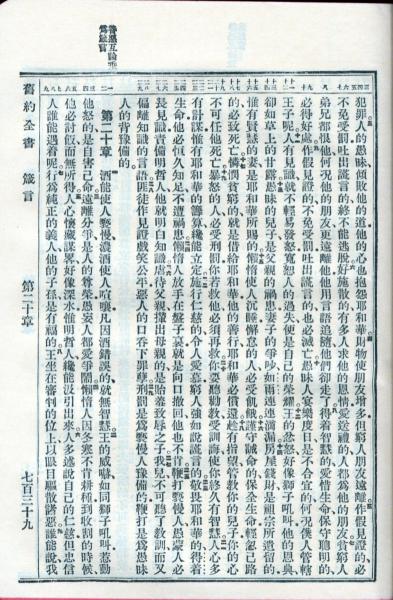 善惡互論垂
爲箴言
犯罪人的愚昧傾敗他的道他的心也抱怨耶和華財物使朋友增多但窮人朋友遠離作假見證的必
不免受罰吐出謊言的終不能逃脫好施散的有多人求他的恩情愛送禮的人都爲他的朋友貧窮人
弟兄都恨他何況他的朋友更遠離他他用言語追隨他們卻走了得着智慧的愛惜生命保守聰明的
必得好處作假見證的不免受罰吐出謊言的也必滅亡愚昧人宴樂度日是不合宜的何況僕人管轄
王子呢人有見識就不輕易發怒寬恕人的過失便是自己的榮耀王的忿怒好像獅子吼叫他的恩典
卻如草上的甘露愚昧的兒子是父親的禍患妻子的爭吵如雨連連滴漏房屋錢財是祖宗所遺留的
惟有賢慧的妻是耶和華所賜的懶惰使人沉睡懈怠的人必受飢餓謹守誡命的保全生命輕忽己路
的必致死亡憐憫貧窮的就是借給耶和華他的善行耶和華必償還趁有指望管教你的兒子你的心
不可任他死亡暴怒的人必受刑罰你若救他必須再救你要聽勸教受訓誨使你終久有智慧人心多
有計謀惟有耶和華的籌算纔能立定施行仁慈的令人愛慕窮人強如說謊言的敬畏耶和華的得着
生命他必恆久知足不遭禍患懶惰人放手在盤子裏就是向口撤回他也不肯鞭打褻慢人愚蒙人必
長見識責備明哲人他就明白知識虐待父親攆出母親的是貽羞致辱之子我兒不可聽了教訓而又
偏離知識的言語匪徒作見證戲笑公平惡人的口吞下罪孽刑罰是爲褻慢人豫備的鞭打是爲愚昧
人的背豫備的
第二十章 酒能使人褻慢濃酒使人喧嚷凡因酒錯誤的就無智慧王的威嚇如同獅子吼叫惹動
他怒的是自害己命遠離分爭是人的尊榮愚妄人都愛爭鬧懶惰人因冬寒不肯耕種到收割的時候
他必討飯而無所得人心懷藏謀畧好像深水惟明哲人纔能汲引出來人多述說自己的仁慈但忠信
人誰能遇着呢行爲純正的義人他的子孫是有福的王坐在審判的位上以眼目驅散諸惡誰能說我
舊約全書 箴言 第二十章 七百三十九